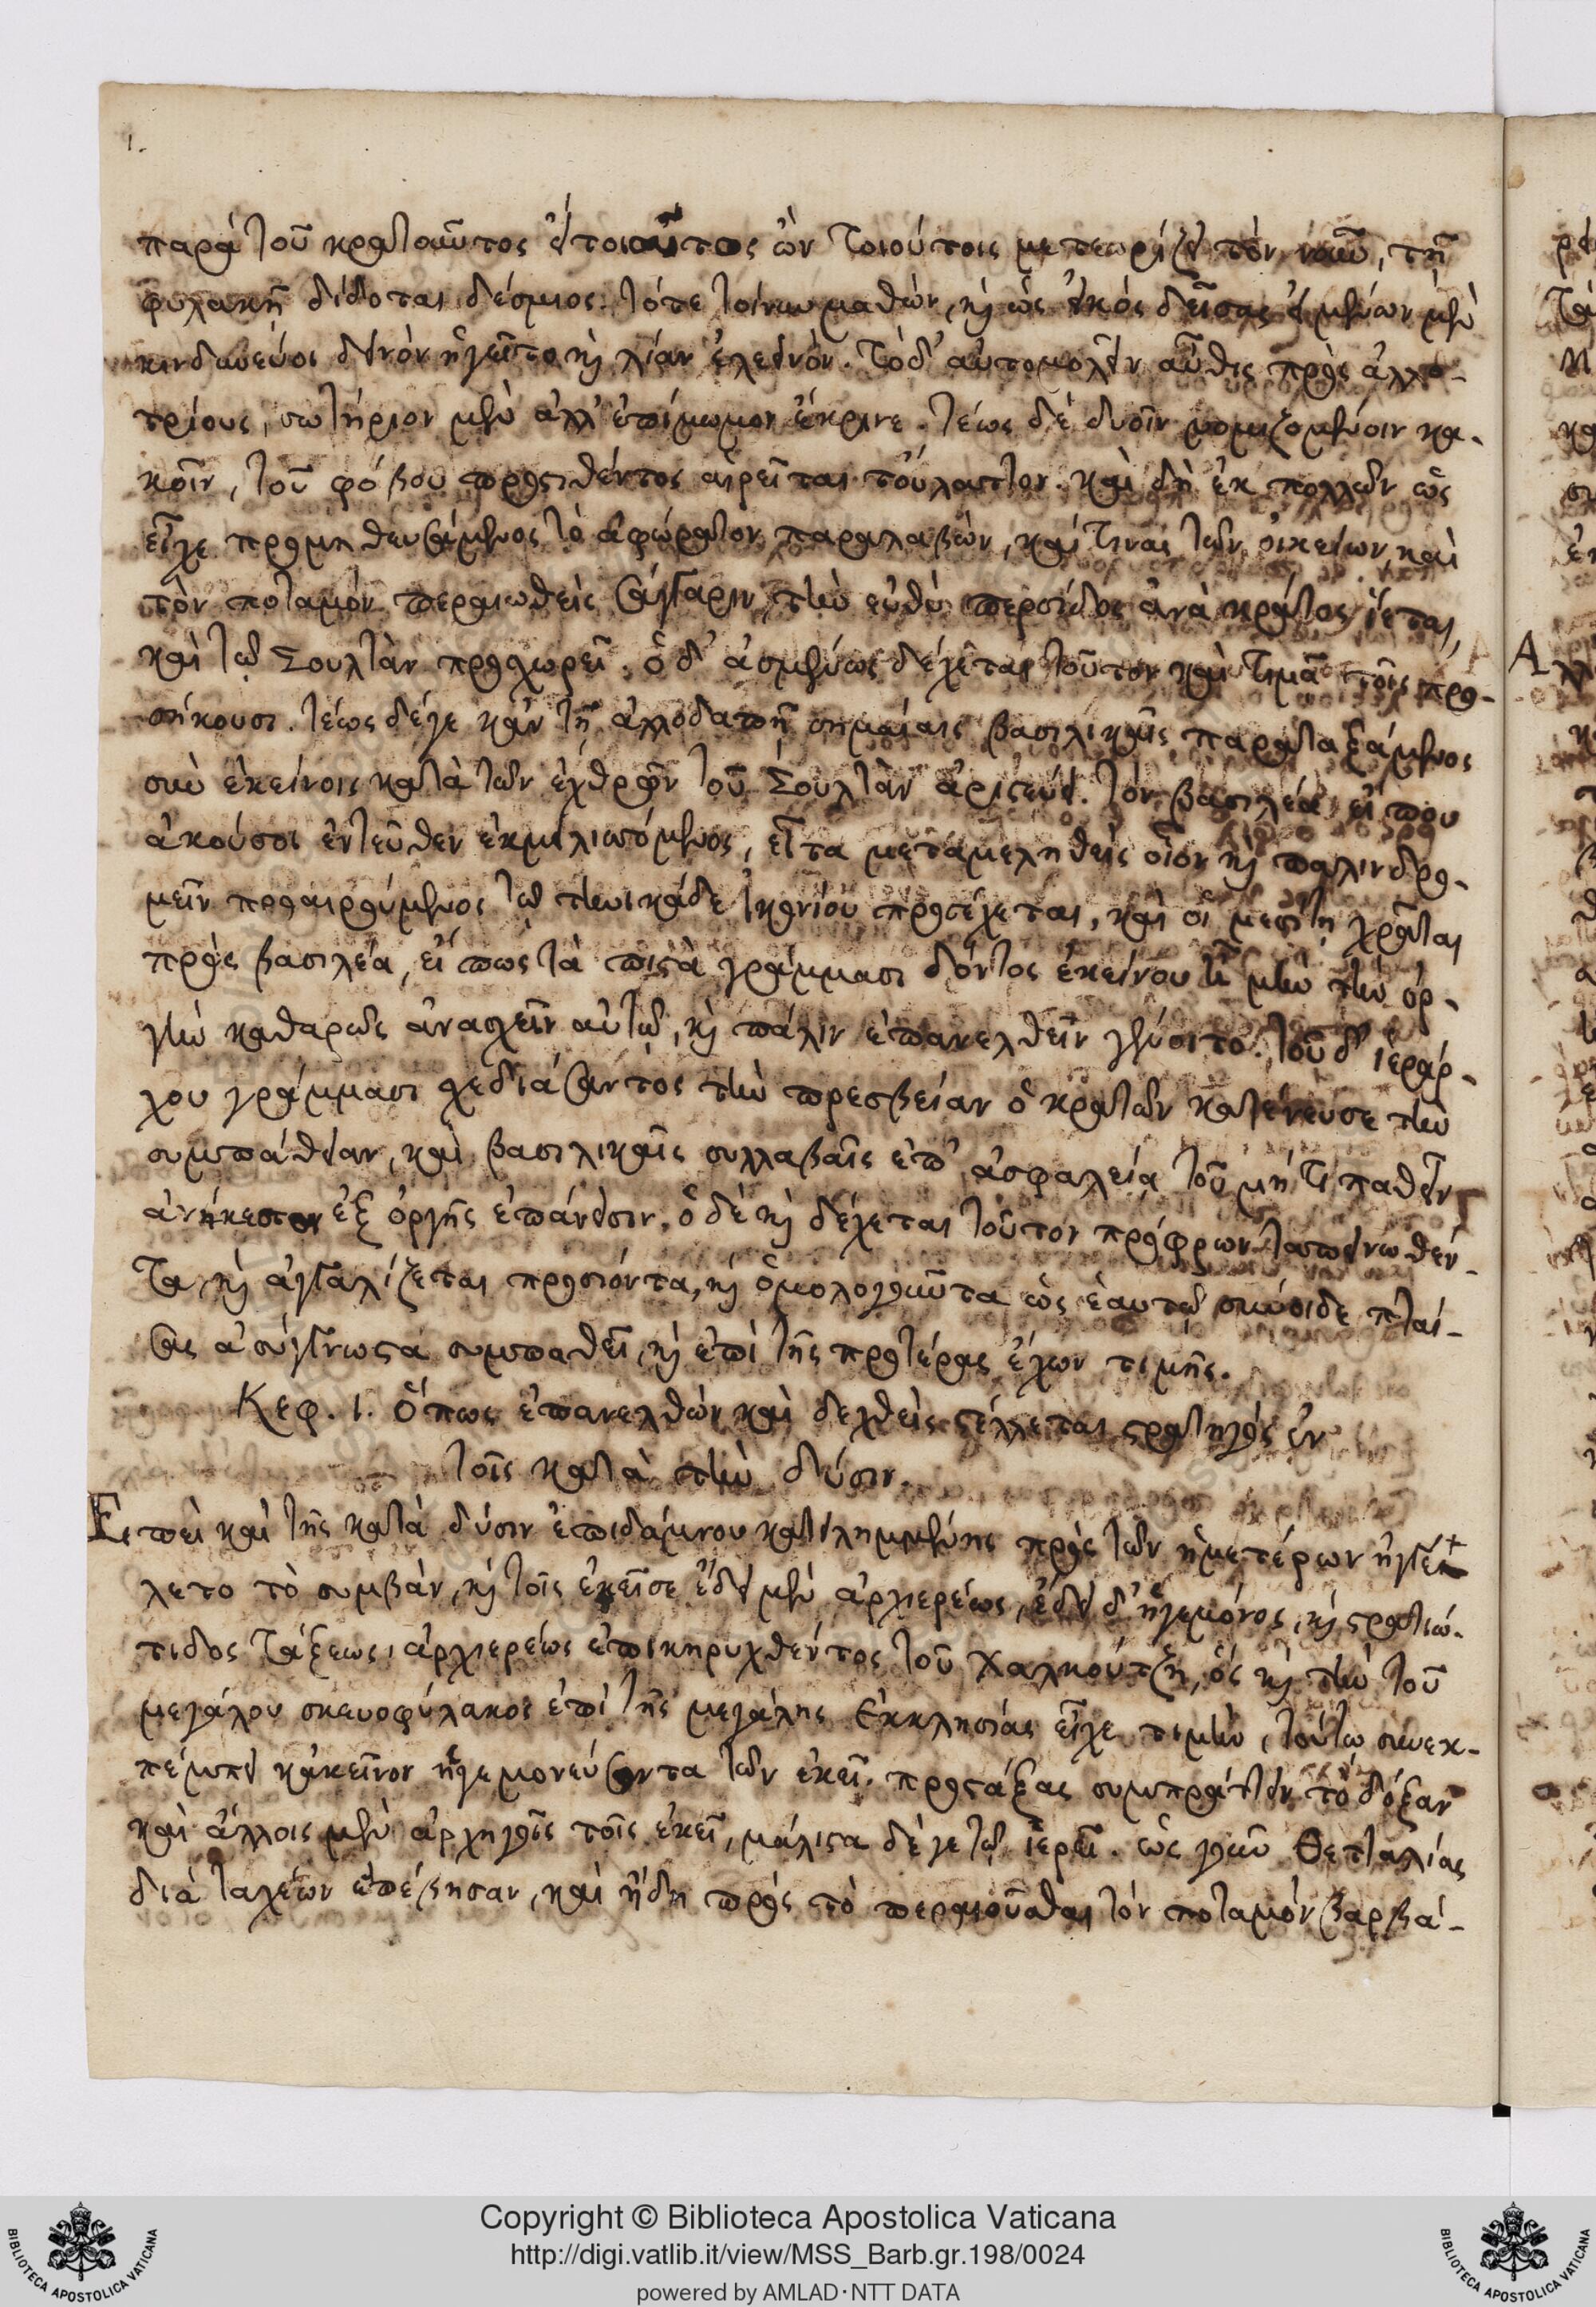 1.
παρὰ τοῦ κρατοῦντος ἐν τοιοῦτος ὢν τοιούτοις μετεωρίζει τὸν νοῦν, τῇ
φυλακῇ δίδοται δέσμιος. τότε τοίνυν μαθών, καὶ ὡς εἰκὸς δείσας εἰ μένων μὲν
κινδυνεύοι δεινὸν ἡγεῖτο καὶ λίαν ἐλεεινόν. τὸ δ' αὐτομολεῖν αὖθις πρὸς ἀλλο-
τρίους, σωτήριον μὲν ἀλλ' ἐπίμωμον ἔκρινε. τέως δὲ δυοῖν νομιζομένοιν κα-
κοῖν, τοῦ φόβου προστιθέντος αἱρεῖται τοὔλαττον. καὶ δὴ ἐκ πολλῶν ὡς
εἶχε προμηθευσάμενος τὸ ἀφώρατον παραλαβών, καί τινας τῶν οἰκείων, καὶ
τὸν ποταμὸν περαιωθεὶς Σάγγαριν, τὴν εὐθὺ Περσίδος ἀνὰ κράτος ἵεται,
καὶ τῷ Σουλτὰν προσχωρεῖ. ὁ δ' ἀσμένως δέχεται τοῦτον καὶ τιμᾷ τοῖς προ-
σήκουσι. τέως δέ γε κἀν τῇ ἀλλοδαπῇ σημαίαις βασιλικαῖς παραταξάμενος
σὺν ἐκείνοις κατὰ τῶν ἐχθρῶν τοῦ Σουλτὰν ἀριστεύει. τὸν βασιλέα εἴ που
ἀκούσοι ἐντεῦθεν ἐκμειλιττόμενος, εἶτα μεταμεληθεὶς οἷον καὶ παλινδρο-
μεῖν προαιρούμενος τῷ τηνικάδε Ἰκονίου προσέχεται, καὶ οἱ μεσίτῃ χρᾶται
πρὸς βασιλέα, εἴ πως τὰ πιστὰ γράμμασι δόντος ἐκείνου ἦ μὴν τὴν ὀρ-
γὴν καθαρῶς ἀνασχεῖν αὐτῷ, καὶ πάλιν ἐπανελθεῖν γένοιτο. τοῦ δ' ἱεράρ-
χου γράμμασι σχεδιάσαντος τὴν πρεσβείαν ὁ κρατῶν κατένευσε τὴν
συμπάθειαν, καὶ βασιλικαῖς συλλαβαῖς ἐπ' ἀσφαλείᾳ τοῦ μή τι παθεῖν
ἀνήκεστον ἐξ ὀργῆς ἐπάνεισιν. ὁ δὲ καὶ δέχεται τοῦτον πρόφρων ταπεινωθέν-
τα, καὶ ἀγκαλίζεται προσιόντα, καὶ ὁμολογοῦντα ὡς ἑαυτῷ σύνοιδε πταί-
σας ἀσύγγνωστα συμπαθεῖ, καὶ ἐπὶ τῆς προτέρας ἔχων τιμῆς.
Κεφ. 1. Ὅπως ἐπανελθὼν καὶ δεχθεὶς στέλλεται στρατηγὸς ἐν
τοῖς κατὰ τὴν δύσιν.
Ἐπεὶ καὶ τῆς κατὰ δύσιν Ἐπιδάμνου κατειλημμένης πρὸς τῶν ἡμετέρων ἠγγέλ-
λετο τὸ συμβάν, καὶ τοῖς ἐκεῖσε ἔδει μὲν ἀρχιερέως, ἔδει δ' ἡγεμόνος, καὶ στρατιώ-
τιδος τάξεως, ἀρχιερέως ἐπικηρυχθέντος τοῦ Χαλκούτζη, ὃς καὶ τὴν τοῦ
μεγάλου σκευοφύλακος ἐπὶ τῆς μεγάλης Ἐκκλησίας εἶχε τιμήν, τούτῳ συνεκ-
πέμπει κἀκεῖνον ἡγεμονεύσοντα τῶν ἐκεῖ. προστάξας συμπράττειν τὸ δόξαν
καὶ ἄλλοις μὲν ἀρχηγοῖς τοῖς ἐκεῖ, μάλιστα δέ γε τῷ ἱερεῖ. ὡς γοῦν Θετταλίας
διὰ ταχέων ἐπέβησαν, καὶ ἤδη πρὸς τὸ περαιοῦσθαι τὸν ποταμὸν βαρβά-
Copyright © Biblioteca Apostolica Vaticana
http://digi.vatlib.it/view/MSS_Barb.gr.198/0024
powered by AMLAD·NTT DATA
BIBLIOTECA APOSTOLICA VATICANA
BIBLIOTECA APOSTOLICA VATICANA